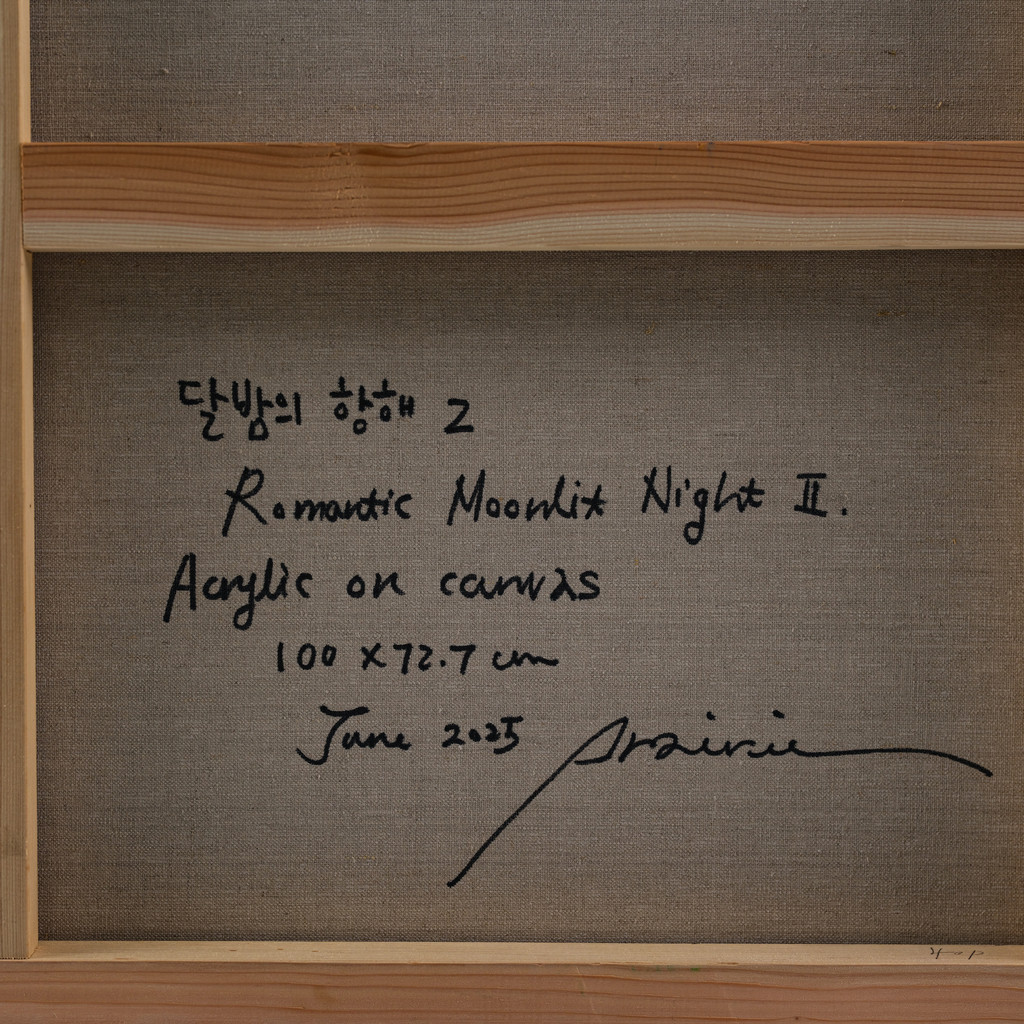 달밤의 항해 2
Romantic Moonlit Night Ⅱ.
Acrylic on canvas
100 x 72.7 cm
June 2025